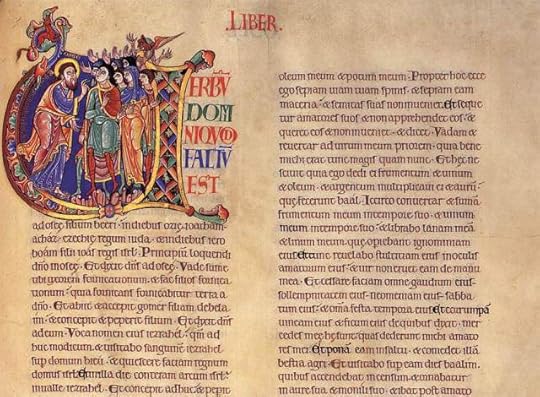 .LIBER.
VERBŪ
DOMI
NI QVOD
FACTŪ
EST
ad osee filium beeri · in diebus ozie · ioatham ·
achaz · ezechie regum iuda · & in diebus iero
boam filii ioas regis isrl̄. Principiū loquendi
dn̄o in osee. Et dixit dn̄s ad osee. Vade sume
tibi uxorem fornicationum · & fac filios fornica
tionum · quia fornicans fornicabitur terra a
dn̄o. Et abiit & accepit gomer filiam debela
im · & concepit & peperit filium. Et dixit dn̄s
ad eum. Voca nomen eius iezrahel · qm̄ ad
huc modicum · & uisitabo sanguinē iezrahel
sup domum hieu · & quiescere faciam regnum
domus isrl̄. Et in illa die conteram arcum isrl̄
in ualle iezrahel. Et concepit adhuc & pepit
oleum meum & potum meum. Propter hoc ecce
ego sepiam uiam tuam spinis · & sepiam eam
maceria · & semitas suas non inueniet. Et seque
tur amatores suos & non apprehendet eos · &
queret eos & non inueniet · & dicet. Vadam &
reuertar ad uirum meum priorem · quia bene
michi erat tunc magis quam nunc. Et hec ne
sciuit quia ego dedi ei frumentum & uinum
& oleum · & argentum multiplicaui ei & aurū ·
que fecerunt baal. Idcirco conuertar & sumā
frumentum meum in tempore suo · & uinum
meum in tempore suo · & liberabo lanam meā
& linum meum que operiebant ignominiam
eius. Et nunc reuelabo stulticiam eius in oculis
amatorum eius · & uir non eruet eam de manu
mea. Et cessare faciam omne gaudium eius
sollempnitatem eius neomeniam eius · sabba
tum eius · & om̄a festa tempora eius. Et corrumpā
uineam eius & ficum eius de quibus dixit · mer
cedes mee he sunt quas dederunt michi amato
res mei. Et ponā eam in saltu · & comedet illā
bestia agri. Et uisitabo sup eam dies baalim ·
quibus accendebat incensum · & ornabatur
in aure sua & monili suo · & ibat post amato